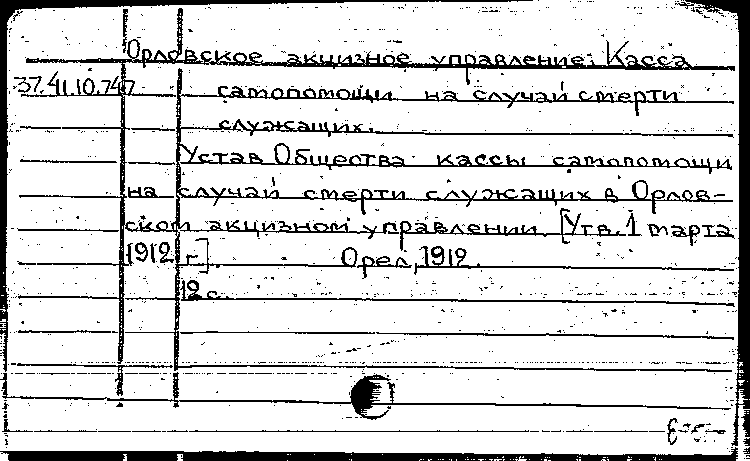 Орловское акцизное управление. Касса
37.41.10.747 самопомощи на случай смерти
служащих.
Устав Общества кассы самопомощи
на случай смерти служащих в Орлов-
ском акцизном управлении. [Утв. 1 марта
1912 г.]. Орел, 1912.
12 с.